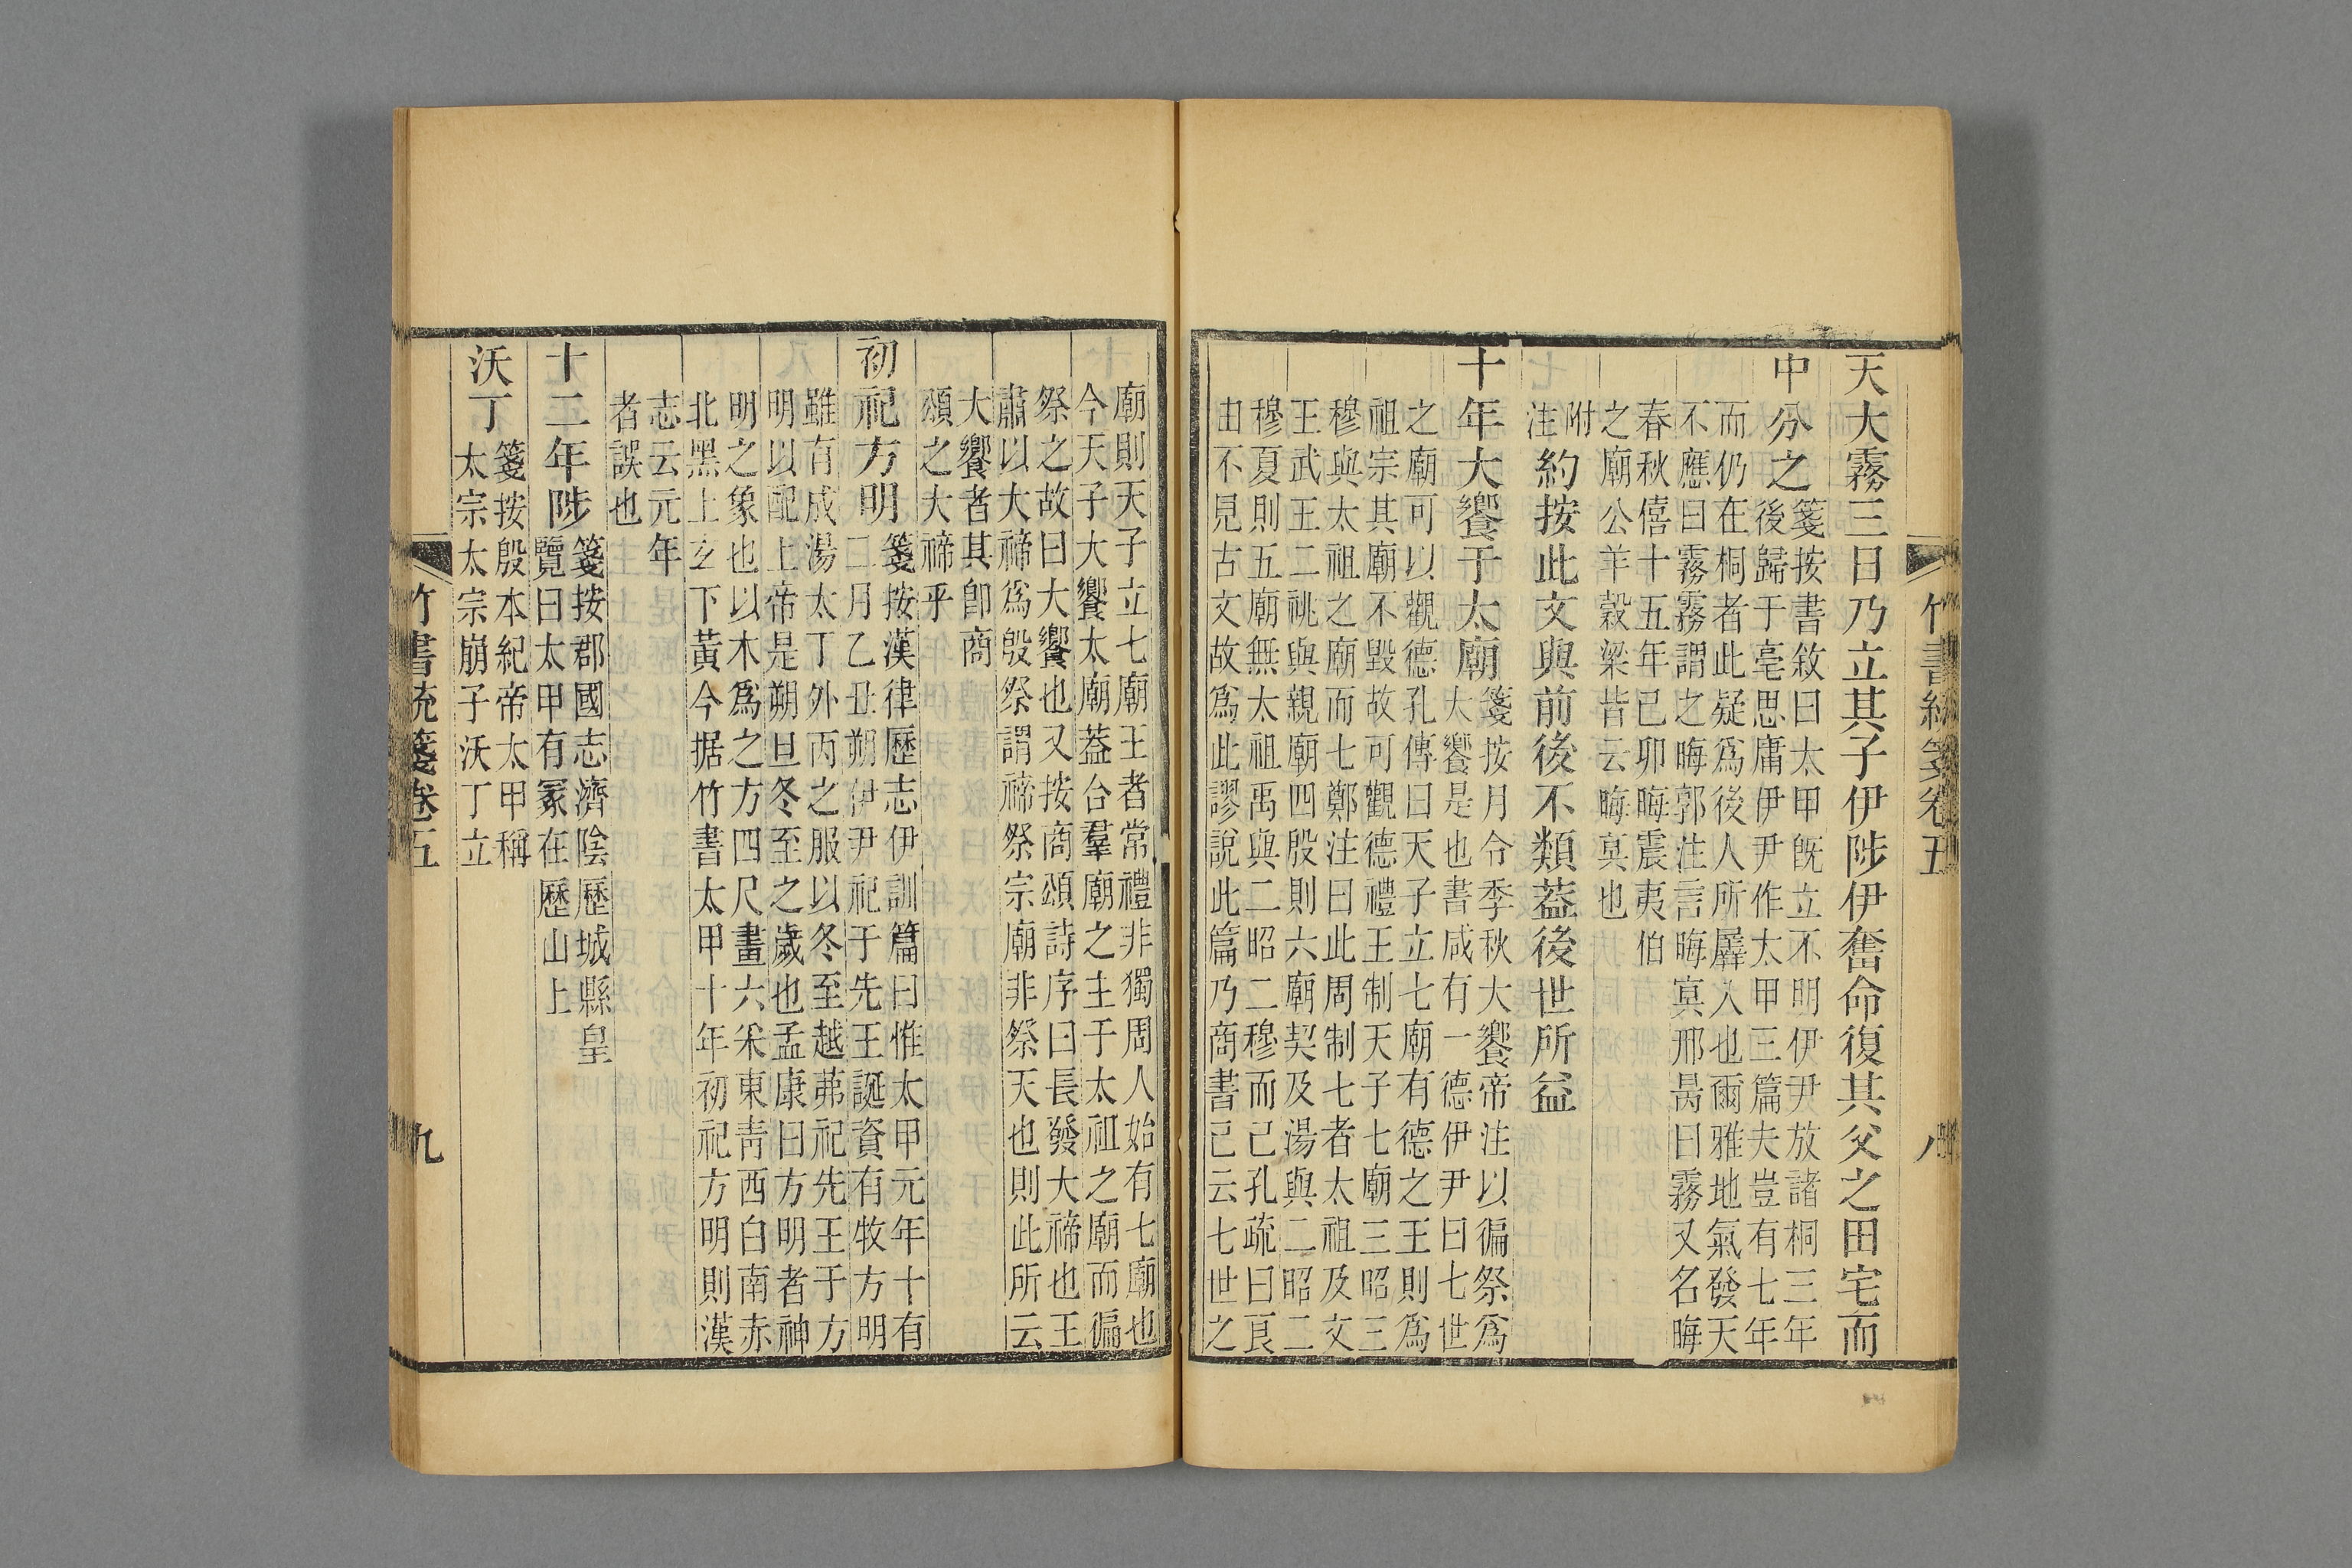 竹書統箋卷五
八
天大霧三日乃立其子伊陟伊奮命復其父之田宅而
中分之
箋按書敘曰太甲旣立不明伊尹放諸桐三年
後歸于亳思庸伊尹作太甲三篇夫豈有七年
而仍在桐者此疑爲後人所羼入也爾雅地氣發天
不應曰霧霧謂之晦郭注言晦㝠邢昺曰霧又名晦
春秋僖十五年己卯晦震夷伯
之廟公羊穀梁皆云晦㝠也
附
注
約按此文與前後不類葢後世所益
十年大饗于太廟
箋按月令季秋大饗帝注以徧祭爲
大饗是也書咸有一德伊尹曰七世
之廟可以觀德孔傳曰天子立七廟有德之王則爲
祖宗其廟不毀故可觀德禮王制天子七廟三昭三
穆與太祖之廟而七鄭注曰此周制七者太祖及文
王武王二祧與親廟四殷則六廟契及湯與二昭二
穆夏則五廟無太祖禹與二昭二穆而已孔疏曰良
由不見古文故爲此謬說此篇乃商書已云七世之
廟則天子立七廟王者常禮非獨周人始有七廟也
今天子大饗太廟葢合羣廟之主于太祖之廟而徧
祭之故曰大饗也又按商頌詩序曰長發大禘也王
肅以大禘爲殷祭謂禘祭宗廟非祭天也則此所云
大饗者其卽商
頌之大禘乎
初祀方明
箋按漢律歷志伊訓篇曰惟太甲元年十有
二月乙丑朔伊尹祀于先王誕資有牧方明
雖有成湯太丁外丙之服以冬至越茀祀先王于方
明以配上帝是朔旦冬至之歲也孟康曰方明者神
明之象也以木爲之方四尺畫六采東靑西白南赤
北黑上玄下黃今据竹書太甲十年初祀方明則漢
志云元年
者誤也
十二年陟
箋按郡國志濟陰歷城縣皇
覽曰太甲有冢在歷山上
沃丁
箋按殷本紀帝太甲稱
太宗太宗崩子沃丁立
竹書統箋卷五
九